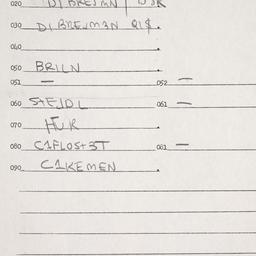 020 DIBRESMAN
030 DIBREJM3N
040
050 BRILN
051 — 052 —
060 StEJDL 061 —
070 HUR
080 C1FLOSt3T 081 —
090 C1KEMEN